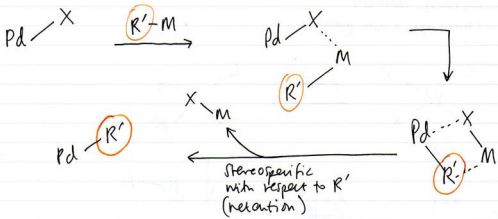 Pd
X
R'-M
Pd
X
M
R'
Pd
X
R'
M
stereospecific
with respect to R'
(retention)
X
M
Pd
R'